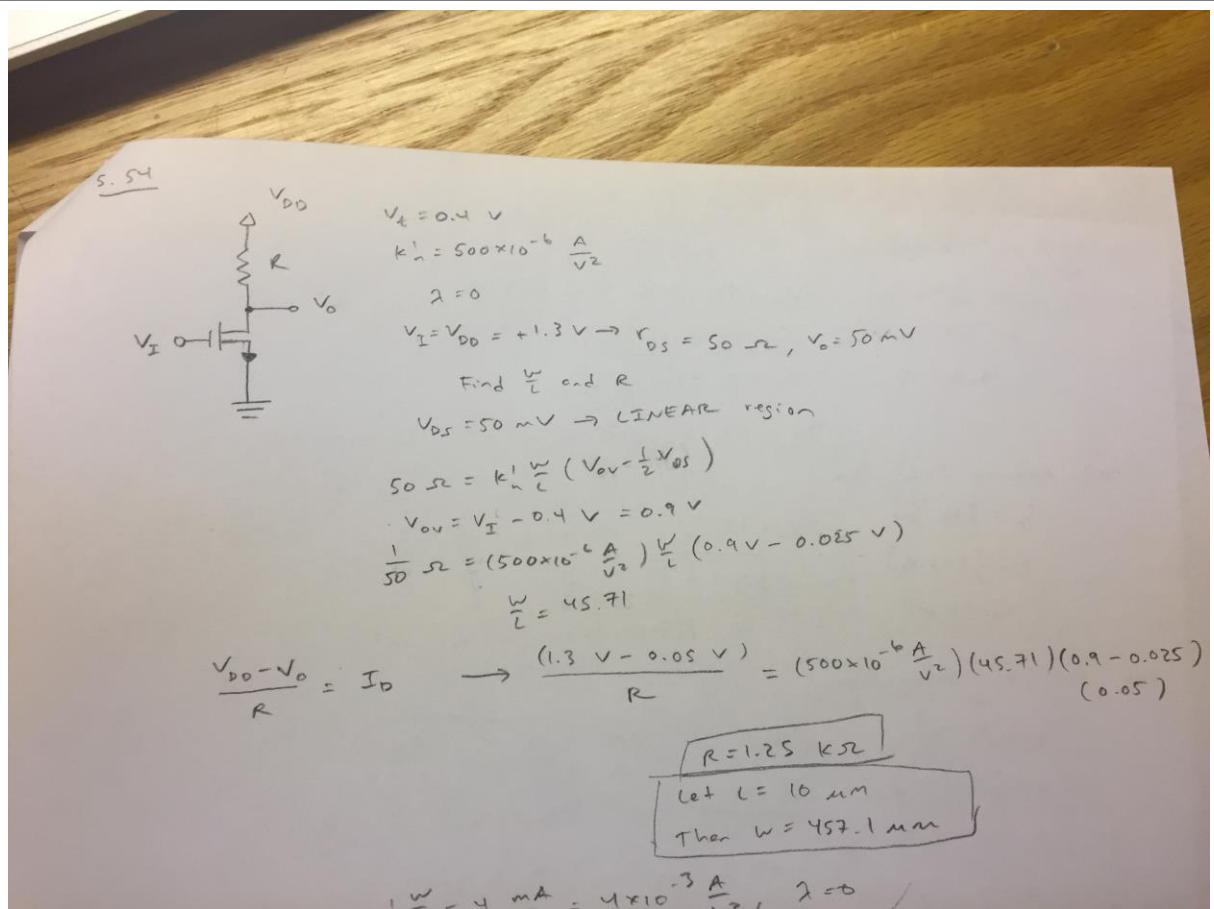 5.54
V_DD
R
V_o
V_I
V_t = 0.4 V
k'_n = 500×10^-6 A/V^2
λ = 0
V_I = V_DD = +1.3 V → r_DS = 50 Ω, V_o = 50 mV
Find W/L and R
V_DS = 50 mV → LINEAR region
50 Ω = k'_n W/L (V_ov - 1/2 V_DS)
V_ov = V_I - 0.4 V = 0.9 V
1/50 Ω = (500×10^-6 A/V^2) W/L (0.9 V - 0.025 V)
W/L = 45.71
(V_DD - V_o)/R = I_D → (1.3 V - 0.05 V)/R = (500×10^-6 A/V^2)(45.71)(0.9 - 0.025)
(0.05)
R = 1.25 kΩ
Let L = 10 μm
Then W = 457.1 μm
W = 4 mA = 4×10^-3 A, λ = 0